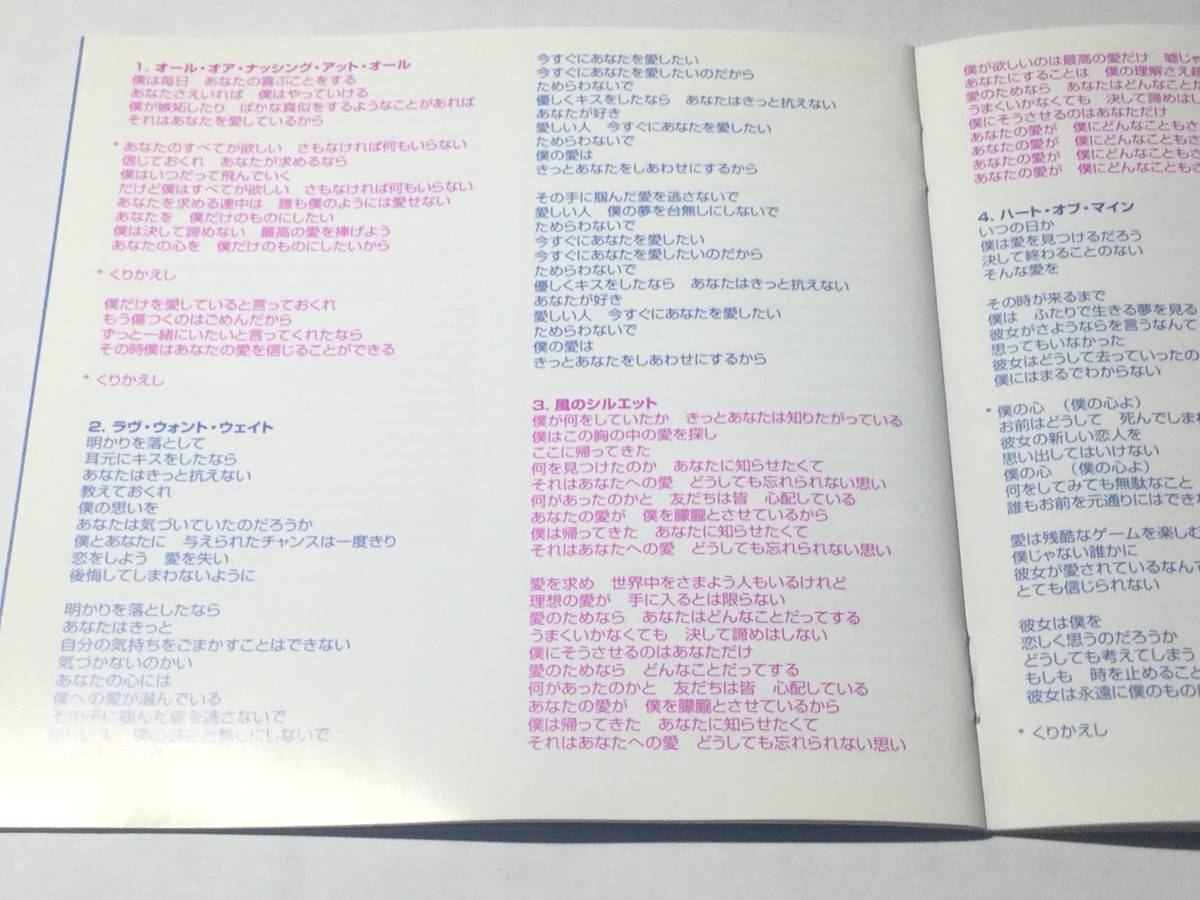 1. オール・オア・ナッシング・アット・オール
僕は毎日　あなたの喜ぶことをする
あなたさえいれば　僕はやっていける
僕が嫉妬したり　ばかな真似をするようなことがあれば
それはあなたを愛しているから
* あなたのすべてが欲しい　さもなければ何もいらない
信じておくれ　あなたが求めるなら
僕はいつだって飛んでいく
だけど僕はすべてが欲しい　さもなければ何もいらない
あなたを求める連中は　誰も僕のようには愛せない
あなたを　僕だけのものにしたい
僕は決して諦めない　最高の愛を捧げよう
あなたの心を　僕だけのものにしたいから
* くりかえし
僕だけを愛していると言っておくれ
もう傷つくのはごめんだから
ずっと一緒にいたいと言ってくれたなら
その時僕はあなたの愛を信じることができる
* くりかえし
2. ラヴ・ウォント・ウェイト
明かりを落として
耳元にキスをしたなら
あなたはきっと抗えない
教えておくれ
僕の思いを
あなたは気づいていたのだろうか
僕とあなたに　与えられたチャンスは一度きり
恋をしよう　愛を失い
後悔してしまわないように
明かりを落としたなら
あなたはきっと
自分の気持ちをごまかすことはできない
気づかないのかい
あなたの心には
僕への愛が潜んでいる
その手に掴んだ愛を逃さないで
愛しい人　僕の夢を台無しにしないで
今すぐにあなたを愛したい
今すぐにあなたを愛したいのだから
ためらわないで
優しくキスをしたなら　あなたはきっと抗えない
あなたが好き
愛しい人　今すぐにあなたを愛したい
ためらわないで
僕の愛は
きっとあなたをしあわせにするから
その手に掴んだ愛を逃さないで
愛しい人　僕の夢を台無しにしないで
ためらわないで
今すぐにあなたを愛したい
今すぐにあなたを愛したいのだから
ためらわないで
優しくキスをしたなら　あなたはきっと抗えない
あなたが好き
愛しい人　今すぐにあなたを愛したい
ためらわないで
僕の愛は
きっとあなたをしあわせにするから
3. 風のシルエット
僕が何をしていたか　きっとあなたは知りたがっている
僕はこの胸の中の愛を探し
ここに帰ってきた
何を見つけたのか　あなたに知らせたくて
それはあなたへの愛　どうしても忘れられない思い
何があったのかと　友だちは皆　心配している
あなたの愛が　僕を朦朧とさせているから
僕は帰ってきた　あなたに知らせたくて
それはあなたへの愛　どうしても忘れられない思い
愛を求め　世界中をさまよう人もいるけれど
理想の愛が　手に入るとは限らない
愛のためなら　あなたはどんなことだってする
うまくいかなくても　決して諦めはしない
僕にそうさせるのはあなただけ
愛のためなら　どんなことだってする
何があったのかと　友だちは皆　心配している
あなたの愛が　僕を朦朧とさせているから
僕は帰ってきた　あなたに知らせたくて
それはあなたへの愛　どうしても忘れられない思い
僕が欲しいのは最高の愛だけ　嘘じゃ
あなたにすることは　僕の理解さえ超
愛のためなら　あなたはどんなことだ
うまくいかなくても　決して諦めはし
僕にそうさせるのはあなただけ
あなたの愛が　僕にどんなこともさ
あなたの愛が　僕にどんなこともさ
あなたの愛が　僕にどんなこともさ
あなたの愛が　僕にどんなこともさ
4. ハート・オブ・マイン
いつの日か
僕は愛を見つけるだろう
決して終わることのない
そんな愛を
その時が来るまで
僕は　ふたりで生きる夢を見る
彼女がさようならを言うなんて
思ってもいなかった
彼女はどうして去っていったの
僕にはまるでわからない
* 僕の心　（僕の心よ）
お前はどうして　死んでしまわ
彼女の新しい恋人を
思い出してはいけない
僕の心　（僕の心よ）
何をしてみても無駄なこと
誰もお前を元通りにはできな
愛は残酷なゲームを楽しむ
僕じゃない誰かに
彼女が愛されているなんて
とても信じられない
彼女は僕を
恋しく思うのだろうか
どうしても考えてしまう
もしも　時を止めること
彼女は永遠に僕のもの
* くりかえし